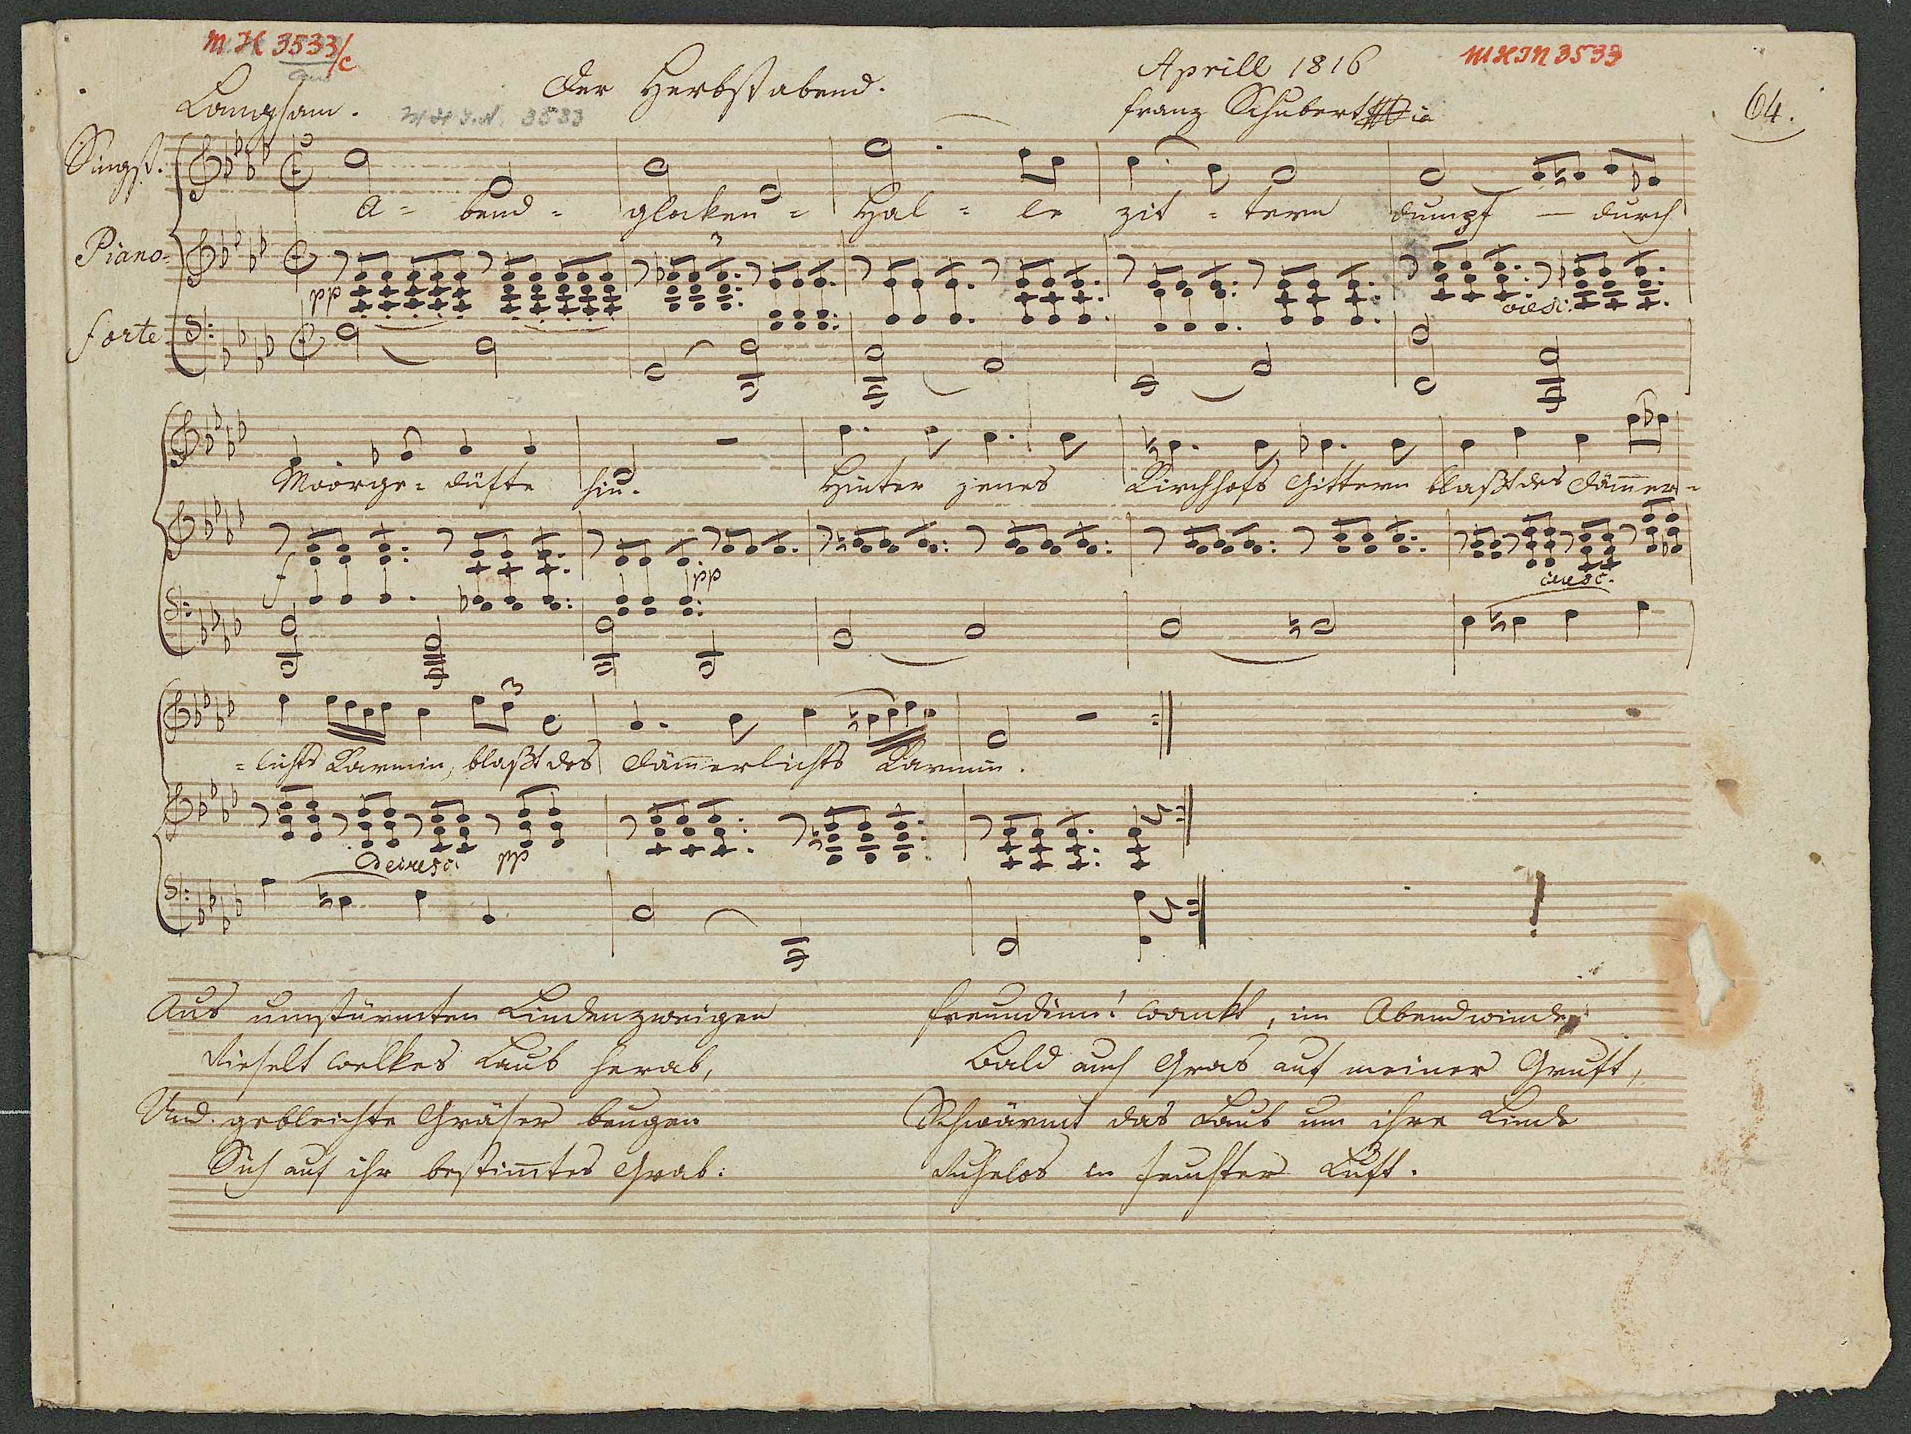 M.H 3533/c
MHIN 3533
Der Herbstabend.
Aprill 1816
64.
Langsam.
M H I. N. 3533
Franz Schubert
Singst.
A- bend- glocken- Hal- le zit- tern dumpf — durch
Piano-
pp
3
cresc.
Forte
Moorge- düfte hin. Hinter jenes Kirchhofs Gittern blaßt des Dämmer-
f
pp
cresc.
3
-lichts Karmin, blaßt des Dämmerlichts Karmin.
Decresc.
pp
Aus umstürmten Lindenzweigen
Rieselt welkes Laub herab,
Und gebleichte Gräser beugen
Sich auf ihr bestimmtes Grab.
Freundinn! wankt, im Abendwinde,
Bald auch Gras auf meiner Gruft,
Schwärmt das Laub um ihre Linde
Ruhelos in feuchter Luft.